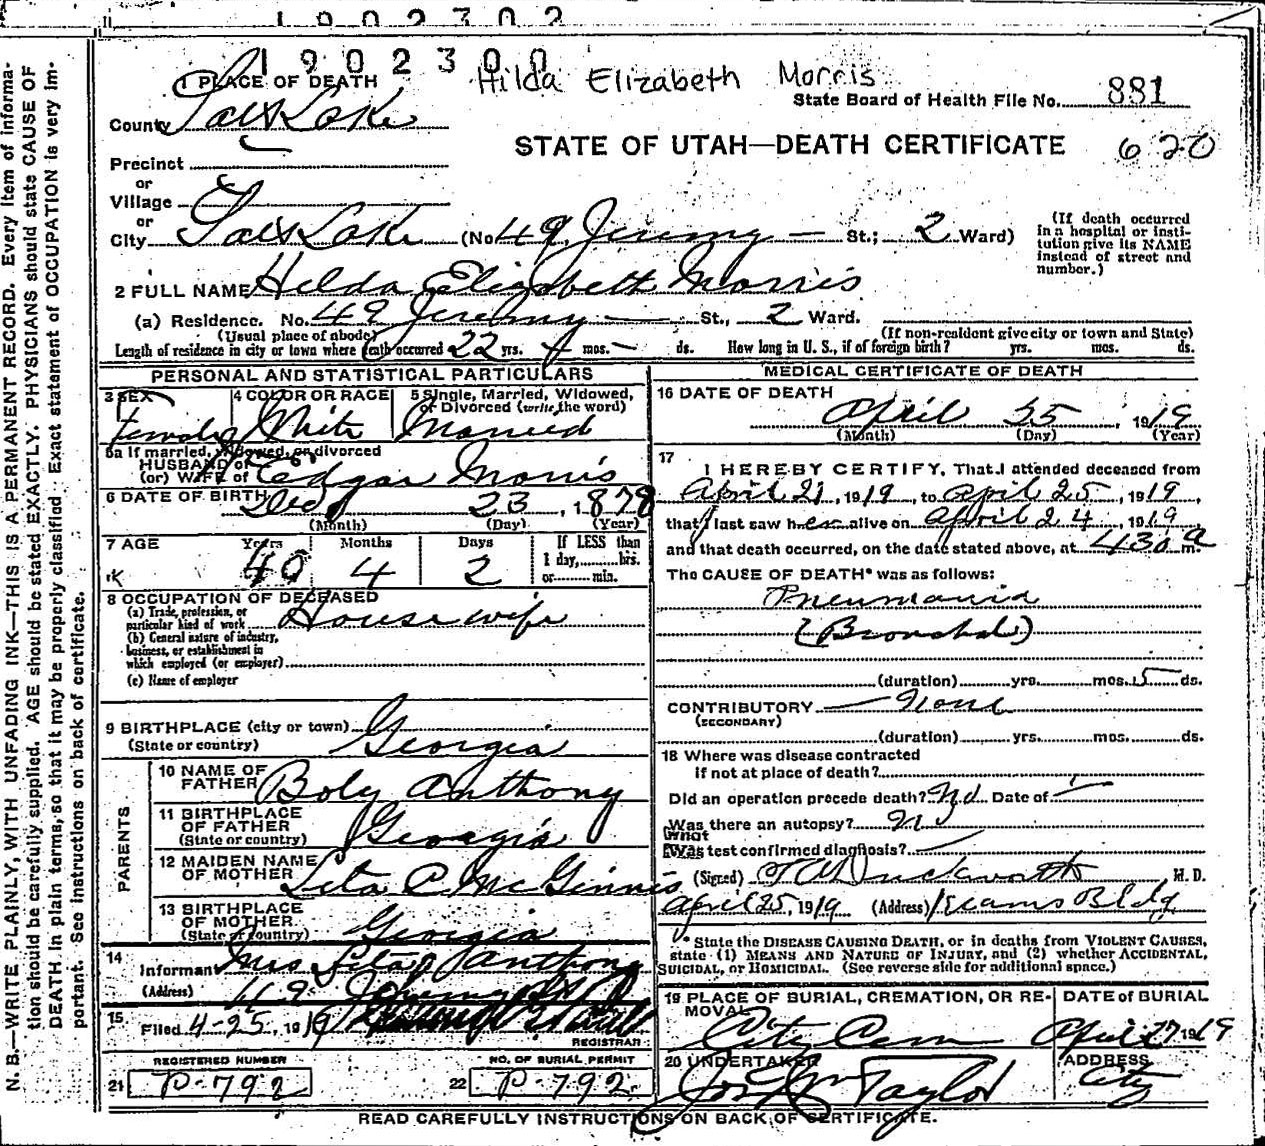 1902302
1902300
Hilda Elizabeth Morris
1 PLACE OF DEATH
State Board of Health File No. 881
County Salt Lake
STATE OF UTAH—DEATH CERTIFICATE 620
Precinct
or
Village
or
City Salt Lake (No. 49 Jeremy — St.; 2 Ward)
(If death occurred in a hospital or institution give its NAME instead of street and number.)
2 FULL NAME Hilda Elizabeth Morris
(a) Residence. No. 49 Jeremy — St., 2 Ward.
(Usual place of abode) (If non-resident give city or town and State)
Length of residence in city or town where death occurred 22 yrs. mos. — ds. How long in U. S., if of foreign birth? yrs. mos. ds.
PERSONAL AND STATISTICAL PARTICULARS
3 SEX Female
4 COLOR OR RACE White
5 Single, Married, Widowed, or Divorced (write the word) Married
5a If married, widowed, or divorced
HUSBAND of
(or) WIFE of Edgar Morris
6 DATE OF BIRTH Dec 23, 1878
(Month) (Day) (Year)
7 AGE Years Months Days If LESS than
40 4 2 1 day, hrs.
or min.
8 OCCUPATION OF DECEASED
(a) Trade, profession, or
particular kind of work House wife
(b) General nature of industry,
business, or establishment in
which employed (or employer)
(c) Name of employer
9 BIRTHPLACE (city or town)
(State or country) Georgia
PARENTS
10 NAME OF
FATHER Boly Anthony
11 BIRTHPLACE
OF FATHER
(State or country) Georgia
12 MAIDEN NAME
OF MOTHER Leta C. McGinnis
13 BIRTHPLACE
OF MOTHER
(State or country) Georgia
14
Informant Mrs Anthony
(Address) 49 St
15
Filed 4-25, 1919
REGISTRAR
REGISTERED NUMBER
21 P-792
NO. OF BURIAL PERMIT
22 P-792
MEDICAL CERTIFICATE OF DEATH
16 DATE OF DEATH
April 25, 1919
(Month) (Day) (Year)
17
I HEREBY CERTIFY, That I attended deceased from
April 21, 1919, to April 25, 1919,
that I last saw her alive on April 24, 1919
and that death occurred, on the date stated above, at 430 a m.
The CAUSE OF DEATH* was as follows:
Pneumonia
(Bronchal)
(duration) yrs. mos. 5 ds.
CONTRIBUTORY — None
(SECONDARY)
(duration) yrs. mos. ds.
18 Where was disease contracted
if not at place of death?
Did an operation precede death? No Date of —
Was there an autopsy? No
What
test confirmed diagnosis? —
(Signed) Duckworth, M. D.
April 25, 1919 (Address) Kearns Bldg
* State the DISEASE CAUSING DEATH, or in deaths from VIOLENT CAUSES,
state (1) MEANS AND NATURE OF INJURY, and (2) whether ACCIDENTAL,
SUICIDAL, or HOMICIDAL. (See reverse side for additional space.)
19 PLACE OF BURIAL, CREMATION, OR RE-
MOVAL City Cem
DATE of BURIAL
April 27 1919
20 UNDERTAKER Jos Wm Taylor
ADDRESS
City
READ CAREFULLY INSTRUCTIONS ON BACK OF CERTIFICATE.
N. B.—WRITE PLAINLY, WITH UNFADING INK—THIS IS A PERMANENT RECORD. Every item of informa-
tion should be carefully supplied. AGE should be stated EXACTLY. PHYSICIANS should state CAUSE OF
DEATH in plain terms, so that it may be properly classified. Exact statement of OCCUPATION is very im-
portant. See instructions on back of certificate.